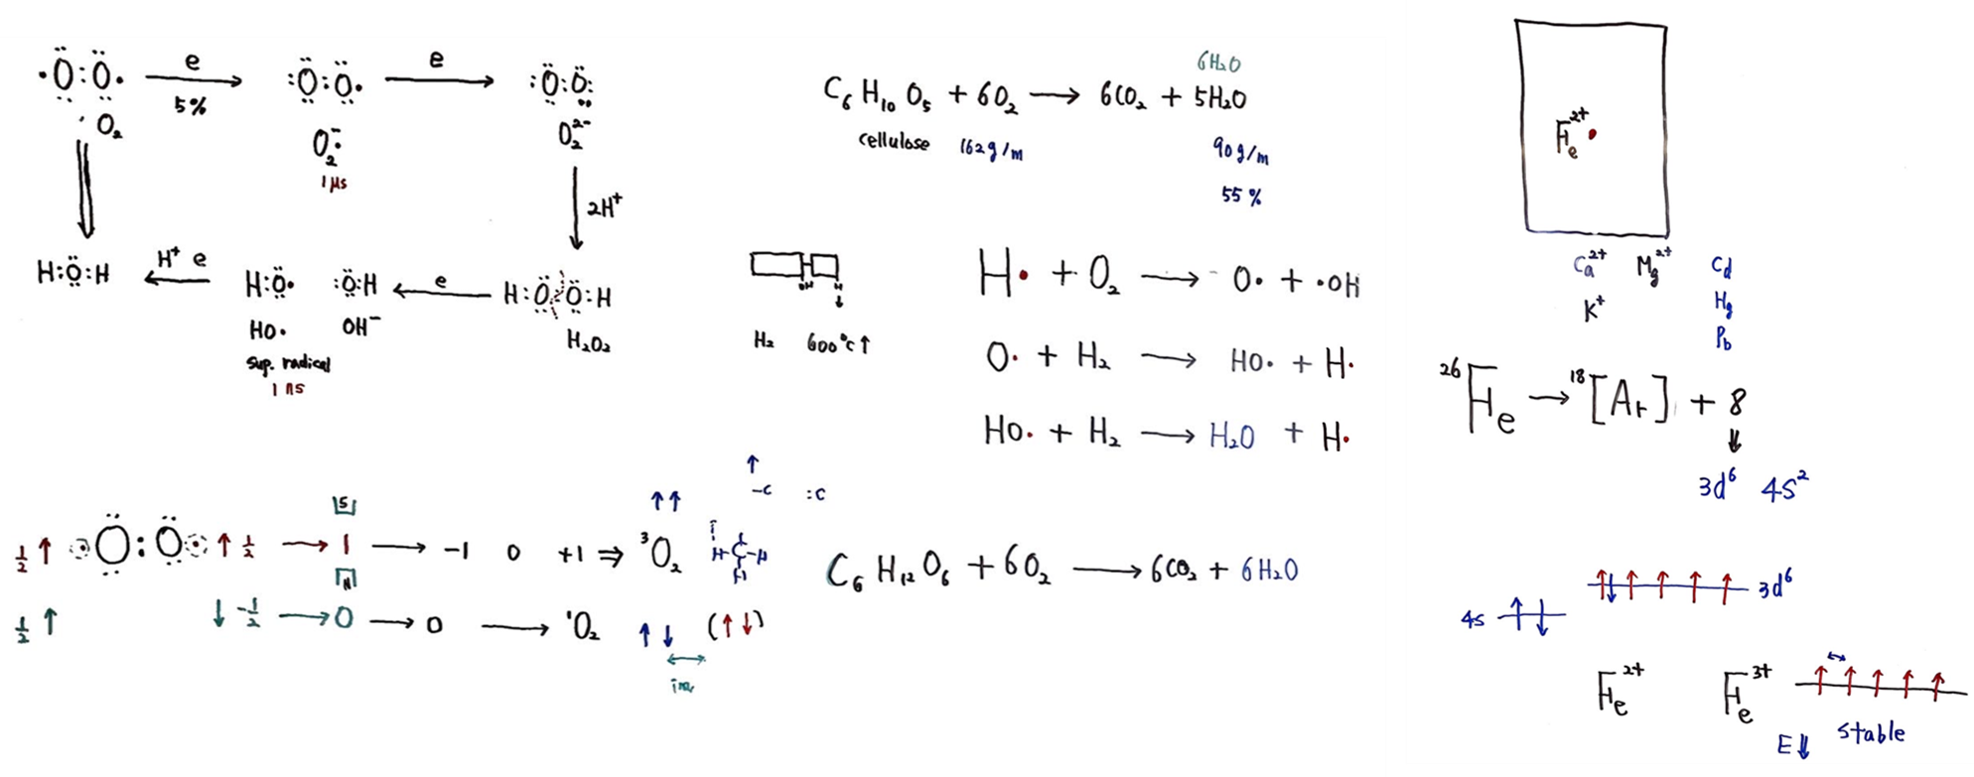 ·Ö:Ö· e 5% :Ö:Ö· e :Ö:Ö:
O₂ O₂⁻· O₂²⁻
1 μs
2H⁺
H:Ö:H H⁺ e H:Ö· :Ö:H e H:Ö:Ö:H
HO· OH⁻ H₂O₂
Sup. radical
1 ns
6H₂O
C₆H₁₀O₅ + 6O₂ → 6CO₂ + 5H₂O
cellulose 162g/m 90g/m
55%
H· + O₂ → O· + ·OH
OH H
H₂ 600°C↑
O· + H₂ → HO· + H·
HO· + H₂ → H₂O + H·
Fe²⁺·
Ca²⁺ Mg²⁺ Cd
K⁺ Hg
Pb
²⁶Fe → ¹⁸[Ar] + 8
⇓
3d⁶ 4s²
½↑ Ö:Ö ↑½ → 1 → -1 0 +1 ⇒ ³O₂ ↑↑
S
N
½↑ ↓-½ → 0 → 0 → ¹O₂ ↑↓ (↑↓)
↑
-C :C
H-C-H
H
C₆H₁₂O₆ + 6O₂ → 6CO₂ + 6H₂O
↑↓ ↑ ↑ ↑ ↑ 3d⁶
4s ↑↓
Fe²⁺ Fe³⁺ ↑ ↑ ↑ ↑ ↑
E⇓ stable